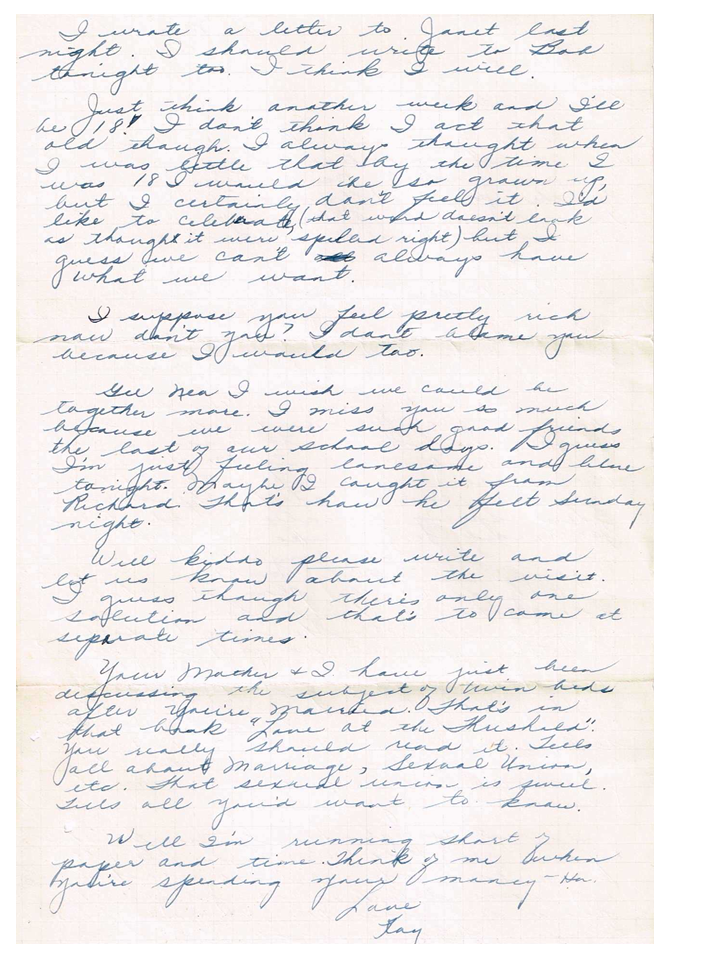 I wrote a letter to Janet last
night. I should write to Bob
tonight too. I think I will.
Just think another week and I'll
be 18! I don't think I act that
old though. I always thought when
I was little that by the time I
was 18 I would be so grown up,
but I certainly don't feel it. I'd
like to celebrate, (that word doesn't look
as thought it were spelled right) but I
guess we can't always have
what we want.
I suppose you feel pretty rich
now don't you? I don't blame you
because I would too.
Gee Nea I wish we could be
together more. I miss you so much
because we were such good friends
the last of our school days. I guess
I'm just feeling lonesome and blue
tonight. Maybe I caught it from
Richard. That's how he felt Sunday
night.
Well kiddo please write and
let us know about the visit.
I guess though there's only one
solution and that's to come at
separate times.
Your Mother & I have just been
discussing the subject of twin beds
after you're Married. That's in
that book "Love at the Threshold".
You really should read it. Tells
all about Marriage, Sexual Union,
etc. That sexual union is swell.
Tells all you'd want to know.
Well I'm running short of
paper and time. Think of me when
you're spending your money - Ha.
Love
Fay